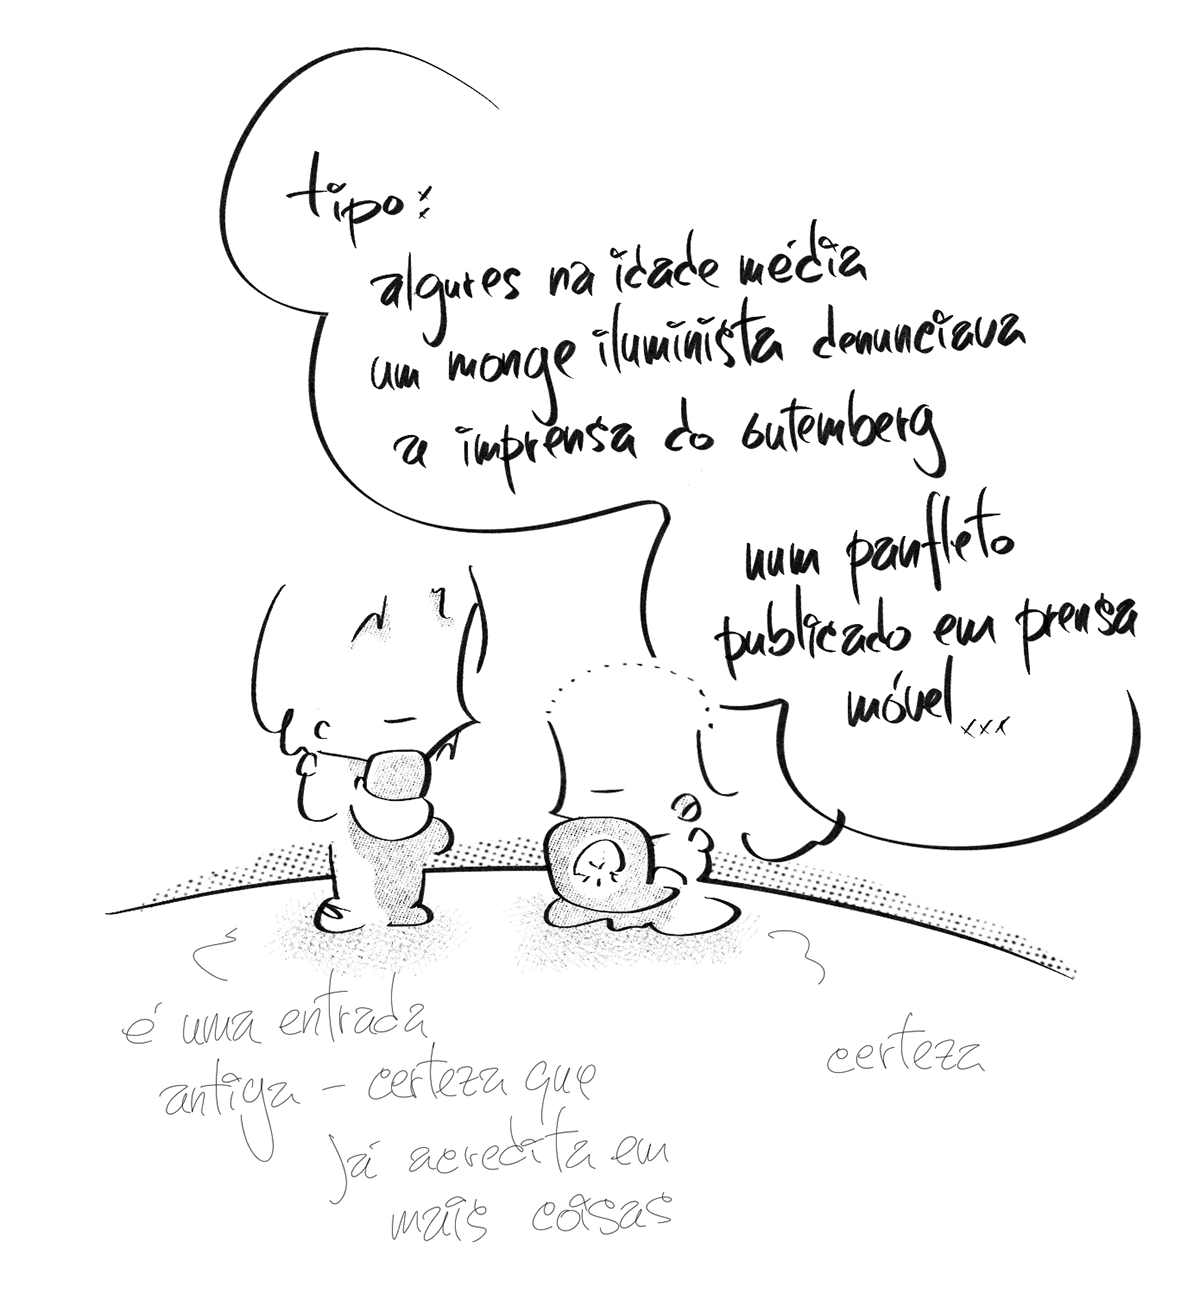 tipo:
algures na idade média
um monge iluminista denunciava
a imprensa do Gutemberg
num panfleto
publicado em prensa
móvel...
é uma entrada
antiga – certeza que
já acredita em
mais coisas
certeza